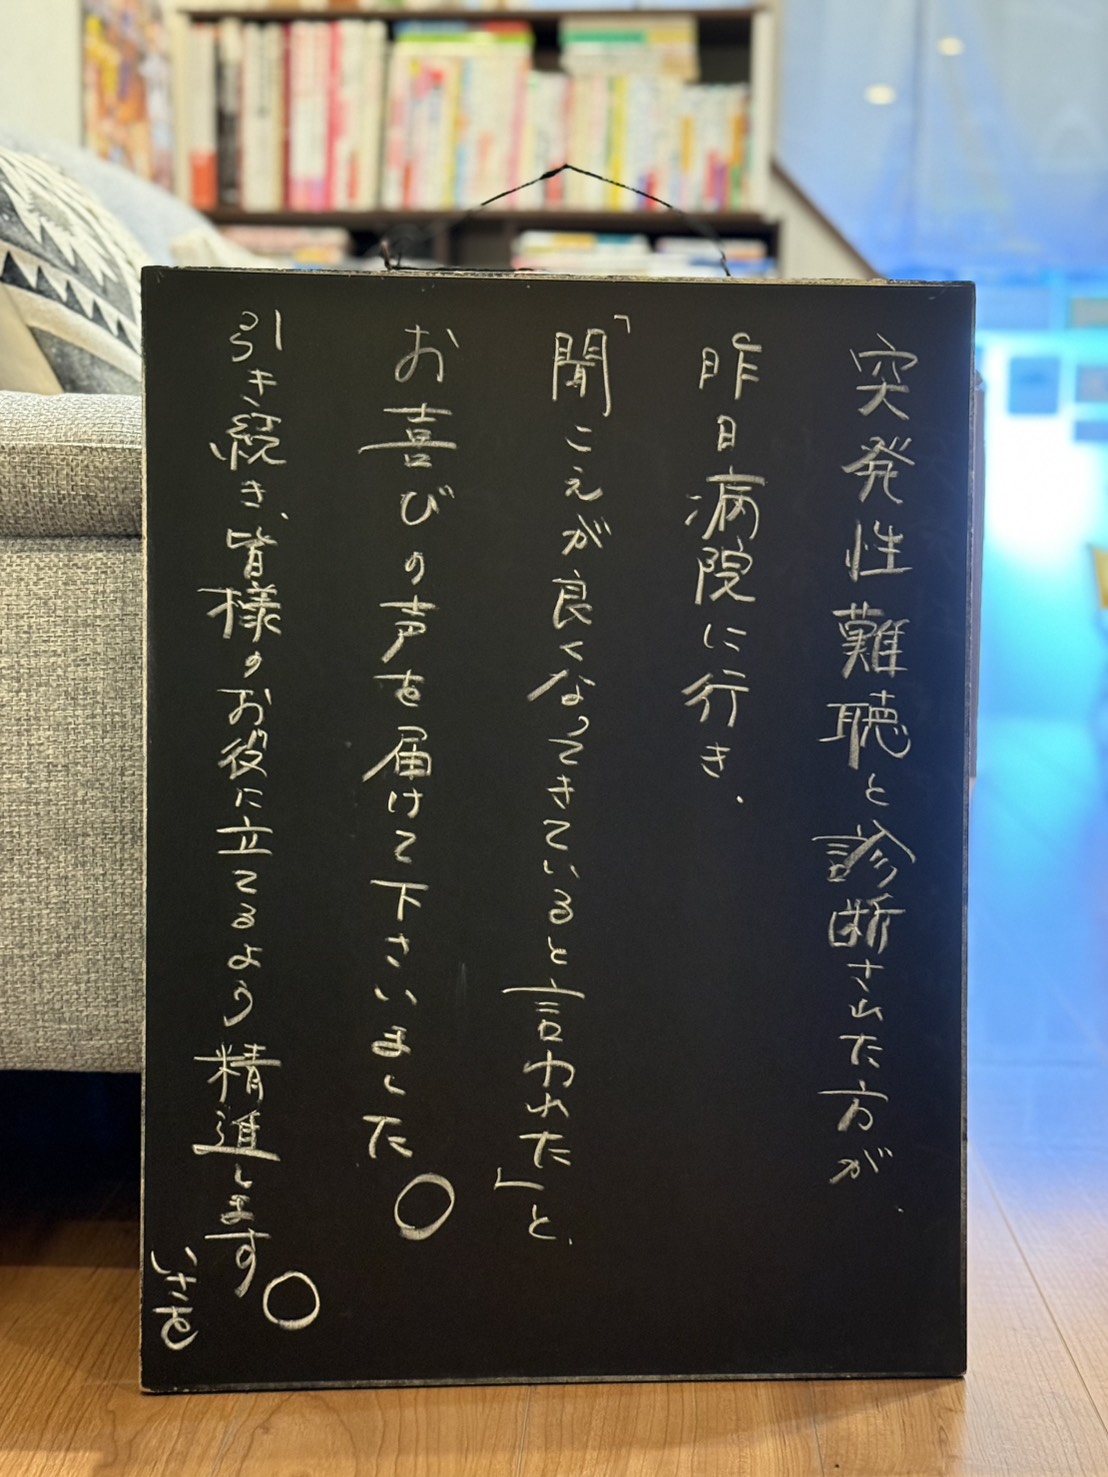 突発性難聴と診断された方が、
昨日病院に行き、
「聞こえが良くなってきていると言われた」と、
お喜びの声を届けて下さいました。
引き続き、皆様のお役に立てるよう精進します。
いさを